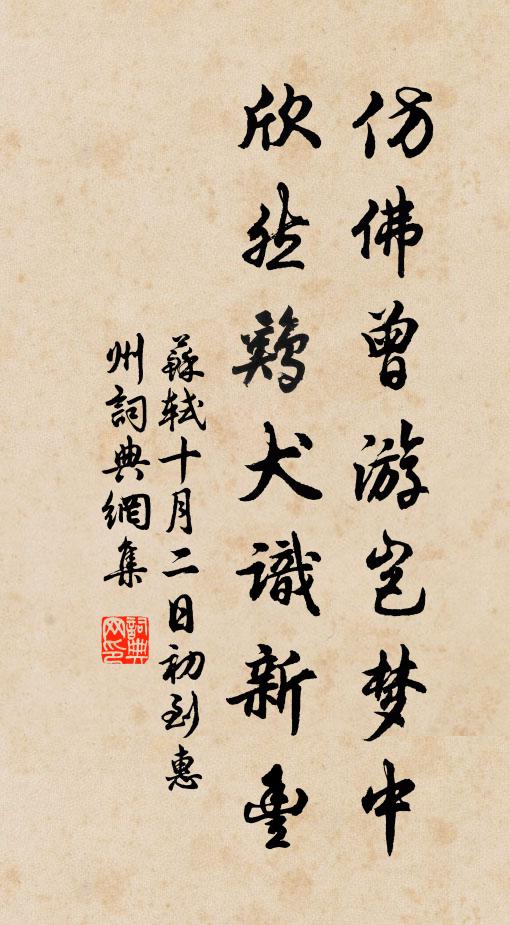 仿佛曾游岂梦中
欣然鷄犬識新豐
蘇軾十月二日初到惠
州詞典網集
詞典网印